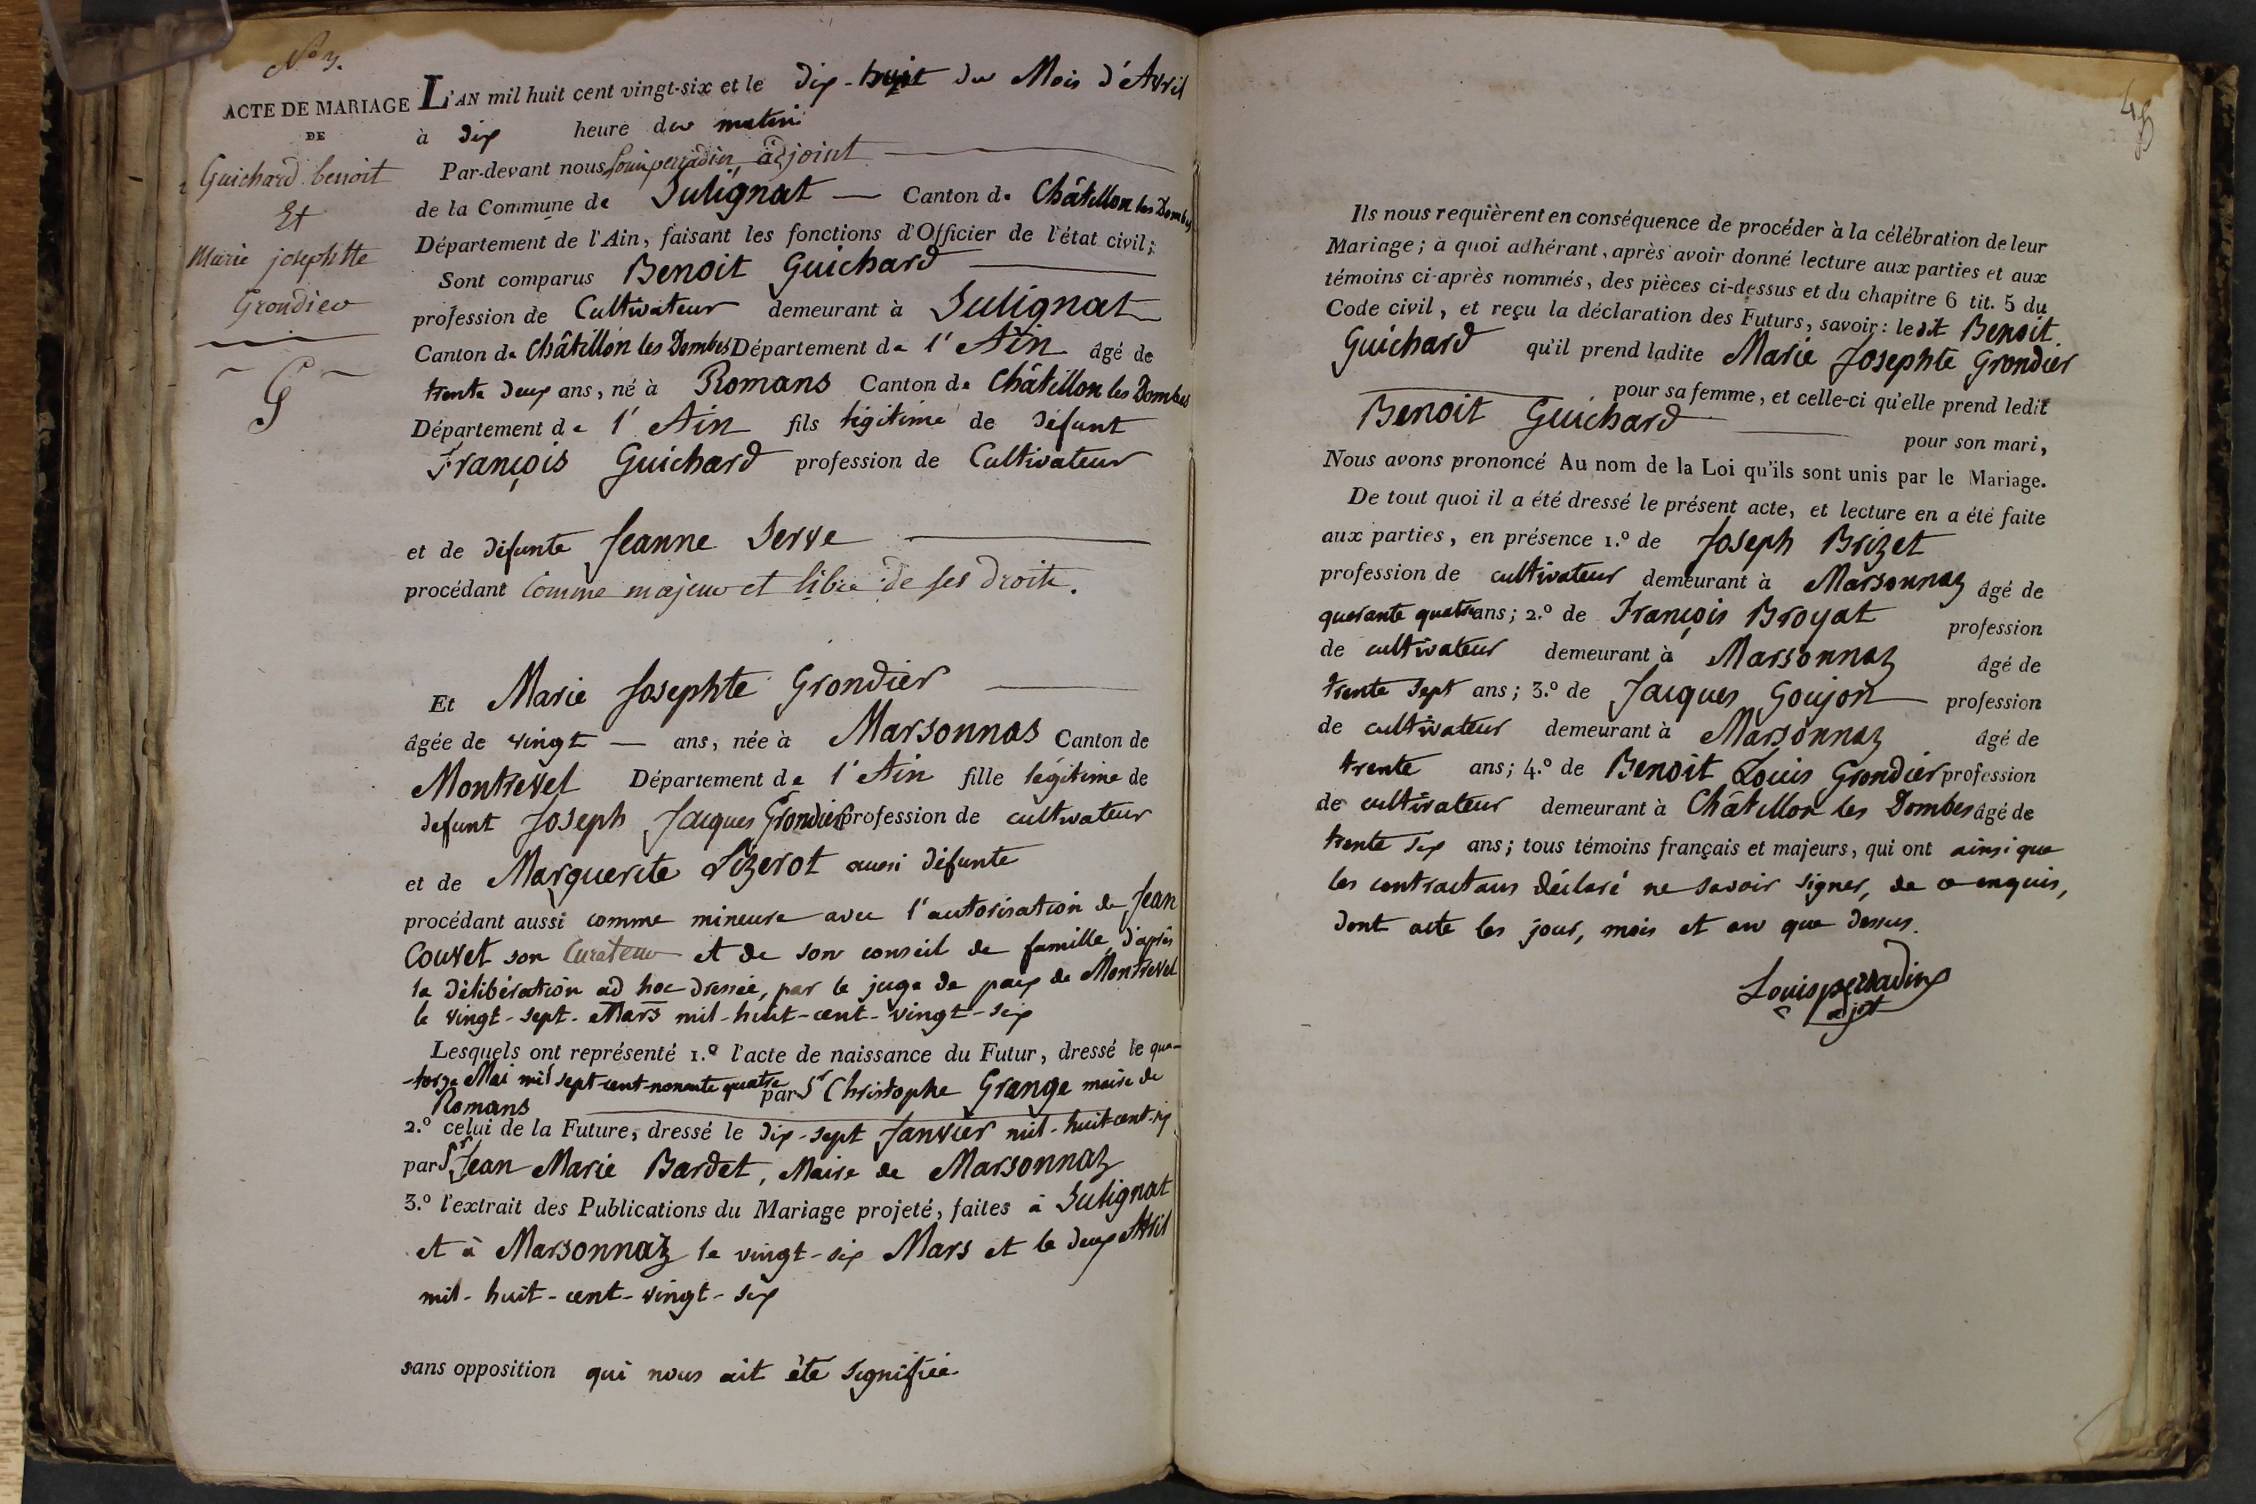 N° 3.
ACTE DE MARIAGE
DE
Guichard benoit
Et
Marie josephtte
Grondier
G
L'AN mil huit cent vingt-six et le dix-huit du Mois d'Avril
à dix heure du matin
Par-devant nous Louis perradin, adjoint
de la Commune de Sulignat — Canton de Châtillon les Dombes
Département de l'Ain, faisant les fonctions d'Officier de l'état civil;
Sont comparus Benoit Guichard
profession de Cultivateur demeurant à Sulignat
Canton de Châtillon les Dombes Département de l'Ain âgé de
trente deux ans, né à Romans Canton de Châtillon les Dombes
Département de l'Ain fils légitime de défunt
François Guichard profession de Cultivateur
et de défunte Jeanne Serve
procédant Comme majeur et libre de ses droits.
Et Marie Josephte Grondier
âgée de vingt — ans, née à Marsonnas Canton de
Montrevel Département de l'Ain fille légitime de
defunt Joseph Jacques Grondier profession de cultivateur
et de Marguerite Lizerot aussi défunte
procédant aussi comme mineure avec l'autorisation de Jean
Couvet son Curateur et de son conseil de famille, d'après
la délibération ad hoc dressée, par le juge de paix de Montrevel
le vingt-sept-Mars mil-huit-cent-vingt-six
Lesquels ont représenté 1.º l'acte de naissance du Futur, dressé le qua-
-torze Mai mil sept-cent-nonante quatre par Sr Christophe Grange maire de
Romans
2.º celui de la Future, dressé le dix-sept Janvier mil-huit-cent-six
par Sr Jean Marie Bardet, Maire de Marsonnaz
3.º l'extrait des Publications du Mariage projeté, faites à Sulignat
et à Marsonnaz le vingt-six Mars et le deux Avril
mil-huit-cent-vingt-six
sans opposition qui nous ait été signifiée
48
Ils nous requièrent en conséquence de procéder à la célébration de leur
Mariage; à quoi adhérant, après avoir donné lecture aux parties et aux
témoins ci-après nommés, des pièces ci-dessus et du chapitre 6 tit. 5 du
Code civil, et reçu la déclaration des Futurs, savoir: ledit Benoit
Guichard qu'il prend ladite Marie Josephte Grondier
pour sa femme, et celle-ci qu'elle prend ledit
Benoit Guichard pour son mari,
Nous avons prononcé Au nom de la Loi qu'ils sont unis par le Mariage.
De tout quoi il a été dressé le présent acte, et lecture en a été faite
aux parties, en présence 1.º de Joseph Brizet
profession de cultivateur demeurant à Marsonnaz âgé de
quarante quatre ans; 2.º de François Broyat profession
de cultivateur demeurant à Marsonnaz âgé de
trente sept ans; 3.º de Jacques Goujon profession
de cultivateur demeurant à Marsonnaz âgé de
trente ans; 4.º de Benoit Louis Grondier profession
de cultivateur demeurant à Châtillon les Dombes âgé de
trente six ans; tous témoins français et majeurs, qui ont ainsi que
les contractans déclaré ne savoir signer, de ce enquis,
dont acte les jour, mois et an que dessus.
Louis perradin
adjt